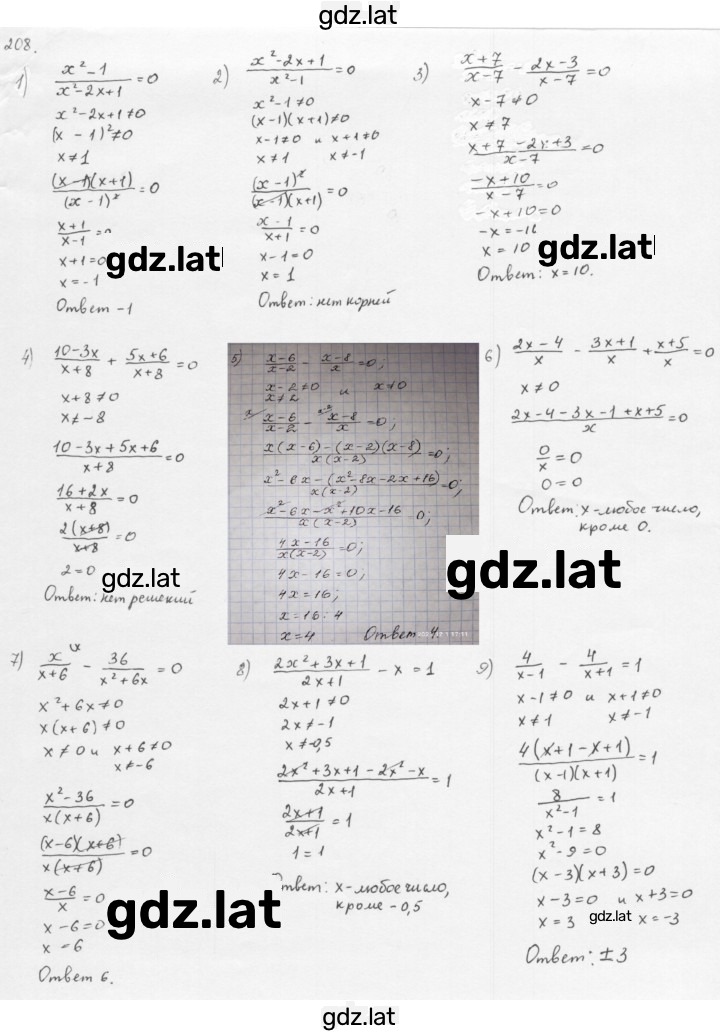 gdz.lat
208.
1) (x²-1)/(x²-2x+1) = 0
x²-2x+1≠0
(x-1)²≠0
x≠1
((x-1)(x+1))/(x-1)² = 0
(x+1)/(x-1) = 0
x+1=0
x=-1
Ответ -1
2) (x²-2x+1)/(x²-1) = 0
x²-1≠0
(x-1)(x+1)≠0
x-1≠0 и x+1≠0
x≠1 x≠-1
(x-1)²/((x-1)(x+1)) = 0
(x-1)/(x+1) = 0
x-1=0
x=1
Ответ: нет корней
3) (x+7)/(x-7) - (2x-3)/(x-7) = 0
x-7≠0
x≠7
(x+7-2x+3)/(x-7) = 0
(-x+10)/(x-7) = 0
-x+10=0
-x=-10
x=10
Ответ: x=10.
gdz.lat
gdz.lat
4) (10-3x)/(x+8) + (5x+6)/(x+8) = 0
x+8≠0
x≠-8
(10-3x+5x+6)/(x+8) = 0
(16+2x)/(x+8) = 0
2(x+8)/(x+8) = 0
2=0
Ответ: нет решений
gdz.lat
5) (x-6)/(x-2) - (x-8)/x = 0;
x-2≠0 и x≠0
x≠2
(x-6)/(x-2) - (x-8)/x = 0;
(x(x-6)-(x-2)(x-8))/(x(x-2)) = 0;
(x²-6x-(x²-8x-2x+16))/(x(x-2)) = 0;
(x²-6x-x²+10x-16)/(x(x-2)) 0;
(4x-16)/(x(x-2)) = 0;
4x-16=0;
4x=16;
x=16:4
x=4 Ответ 4.
6) (2x-4)/x - (3x+1)/x + (x+5)/x = 0
x≠0
(2x-4-3x-1+x+5)/x = 0
0/x = 0
0=0
Ответ: x-любое число,
кроме 0.
gdz.lat
7) x/(x+6) - 36/(x²+6x) = 0
x²+6x≠0
x(x+6)≠0
x≠0 и x+6≠0
x≠-6
(x²-36)/(x(x+6)) = 0
((x-6)(x+6))/(x(x+6)) = 0
(x-6)/x = 0
x-6=0
x=6
Ответ 6.
8) (2x²+3x+1)/(2x+1) - x = 1
2x+1≠0
2x≠-1
x≠-0,5
(2x²+3x+1-2x²-x)/(2x+1) = 1
(2x+1)/(2x+1) = 1
1=1
Ответ: x-любое число,
кроме -0,5
9) 4/(x-1) - 4/(x+1) = 1
x-1≠0 и x+1≠0
x≠1 x≠-1
4(x+1-x+1)/((x-1)(x+1)) = 1
8/(x²-1) = 1
x²-1=8
x²-9=0
(x-3)(x+3)=0
x-3=0 и x+3=0
x=3 x=-3
Ответ: ±3
gdz.lat
gdz.lat
gdz.lat